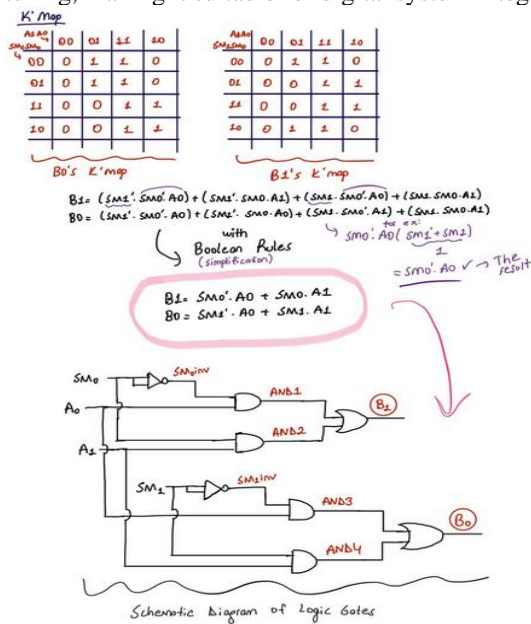 K' Map
A1A0 00 01 11 10
SM1SM0
00 0 1 1 0
01 0 1 1 0
11 0 0 1 1
10 0 0 1 1
B0's K'map
A1A0 00 01 11 10
SM1SM0
00 0 1 1 0
01 0 0 1 1
11 0 0 1 1
10 0 1 1 0
B1's K'map
B1= (SM1'.SM0'.A0) + (SM1'.SM0.A1) + (SM1.SM0'.A0) + (SM1.SM0.A1)
B0= (SM1'.SM0'.A0) + (SM1'.SM0.A0) + (SM1.SM0'.A1) + (SM1.SM0.A1)
with
Boolean Rules
(simplification)
for ex:
SM0'.A0(SM1'+SM1)
1
= SM0'.A0 ✓ → The result
B1= SM0'.A0 + SM0.A1
B0= SM1'.A0 + SM1.A1
SM0
SM0inv
A0
AND1
B1
A1
AND2
SM1
SM1inv
AND3
B0
AND4
Schematic Diagram of Logic Gates